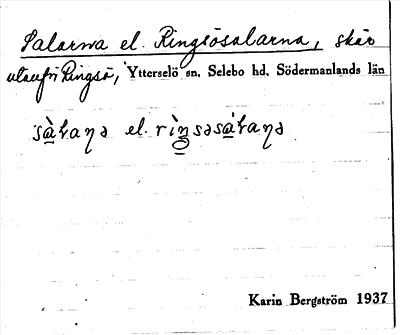 Salarna el. Ringsösalarna, skär
utanför Ringsö, Ytterselö sn, Selebo hd, Södermanlands län
sàḷaṇa el. rìŋsəsàḷaṇa
Karin Bergström 1937